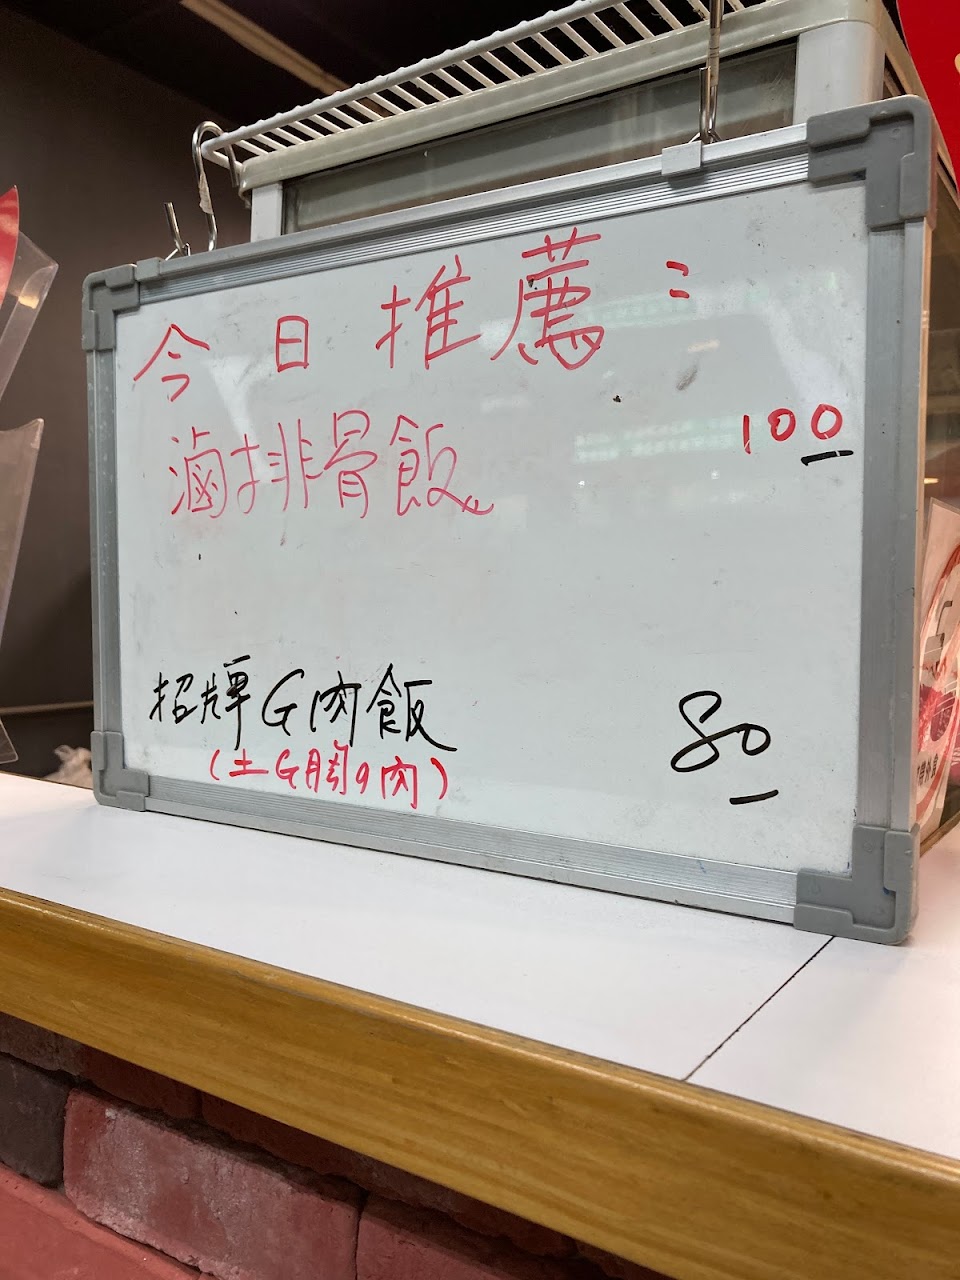 今日推薦：
滷排骨飯 100
招牌G肉飯 80
(土G胸肉)